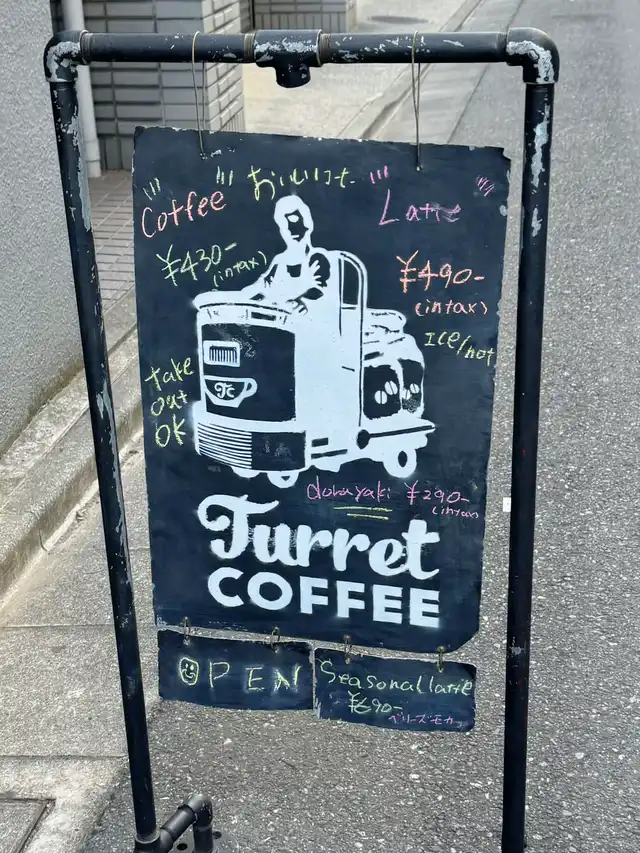 おいしいコーヒー
Coffee
Latte
¥430-
(intax)
¥490-
(intax)
Ice/hot
take
out
OK
Tc
dorayaki ¥290-
(intax)
Turret
COFFEE
OPEN
Seasonal latte
¥690-
ベリーズモカ